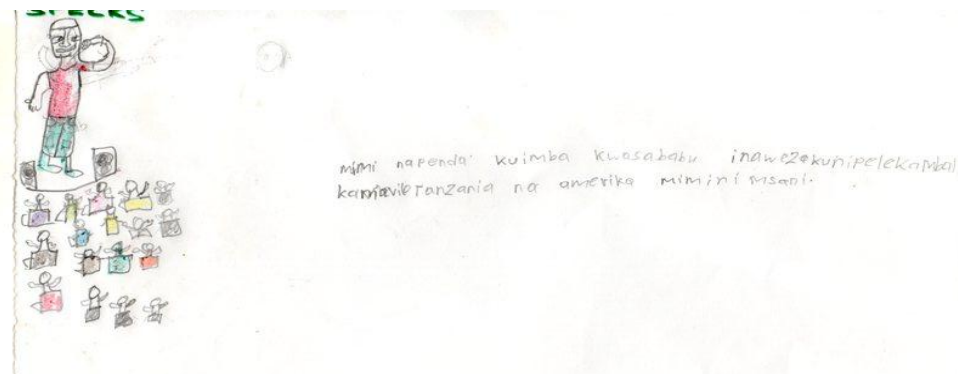 SPEERS
mimi napenda kuimba kwasababu inawezekunipelekambal
kamavile Tanzania na amerika mimini msani.